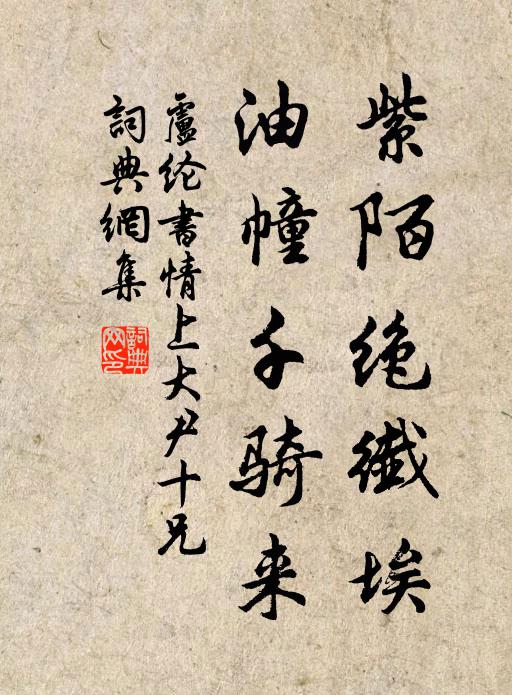 紫陌绝纖埃
油幢千骑来
盧纶書情上大尹十兄
詞典網集
詞典网印